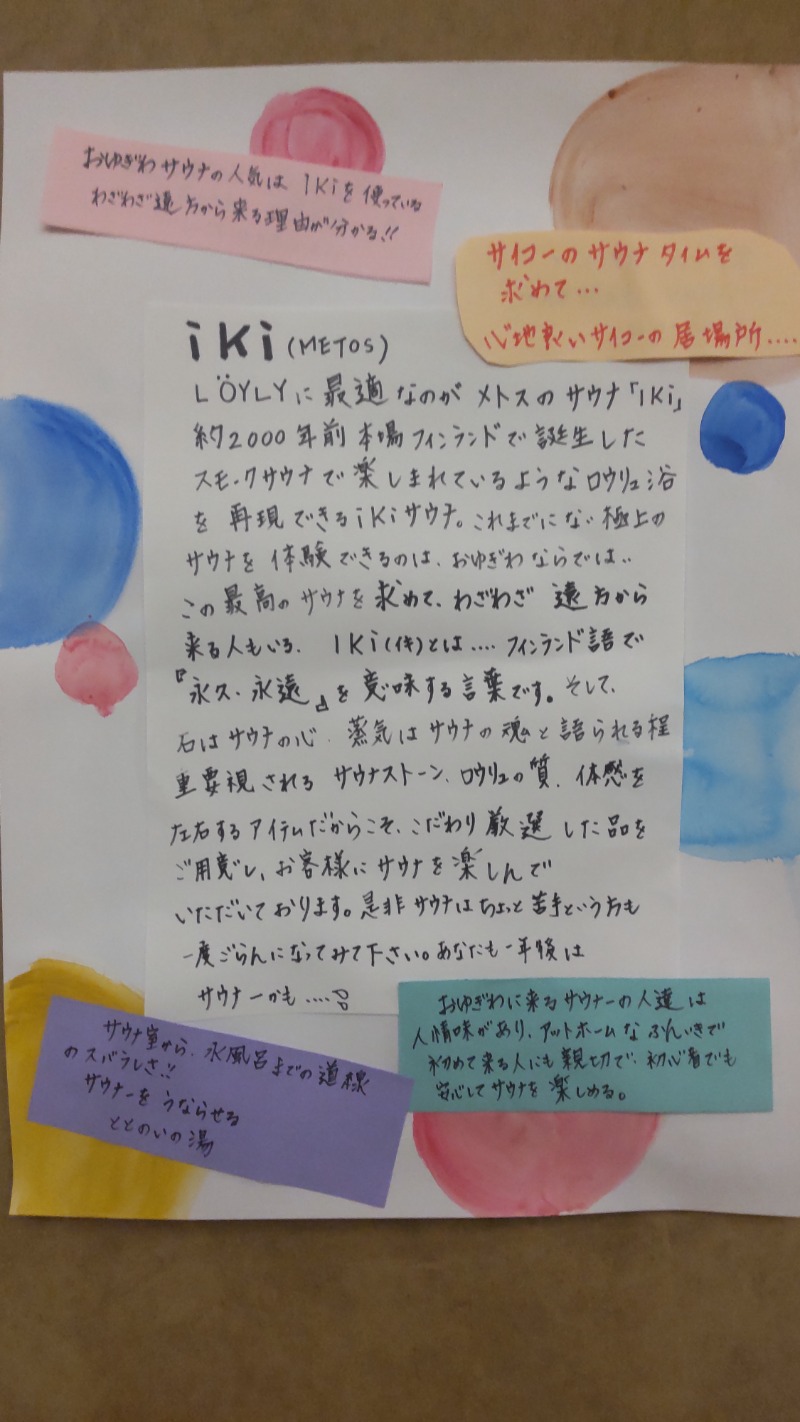 おゆぎわサウナの人気は IKiを使っている
わざわざ遠方から来る理由が分かる!!
サイコーのサウナタイムを
求めて…
心地良いサイコーの居場所....
iki (METOS)
LÖYLYに最適なのがメトスのサウナ「IKi」
約2000年前本場フィンランドで誕生した
スモークサウナで楽しまれているようなロウリュ浴
を再現できるikiサウナ。これまでにない極上の
サウナを体験できるのは、おゆぎわならでは..
この最高のサウナを求めて、わざわざ遠方から
来る人もいる. IKi(イキ)とは....フィンランド語で
『永久、永遠』を意味する言葉です。そして、
石はサウナの心. 蒸気はサウナの魂と語られる程
重要視される サウナストーン、ロウリュの質、体感を
左右するアイテムだからこそ、こだわり厳選した品を
ご用意し、お客様にサウナを楽しんで
いただいております。是非サウナはちょっと苦手という方も
一度ごらんになってみて下さい。あなたも一年後は
サウナーかも....
サウナ室から、水風呂までの導線
のスバラしさ!!
サウナーをうならせる
ととのいの湯
おゆぎわに来るサウナーの人達は
人情味があり、アットホームなふんいきで
初めて来る人にも親切で、初心者でも
安心してサウナを楽しめる。